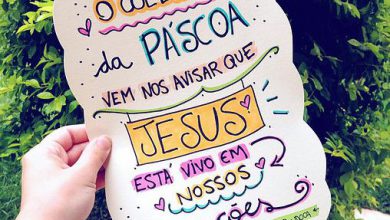 O
da PÁSCOA
VEM NOS AVISAR QUE
JESUS
ESTÁ VIVO EM
NOSSOS